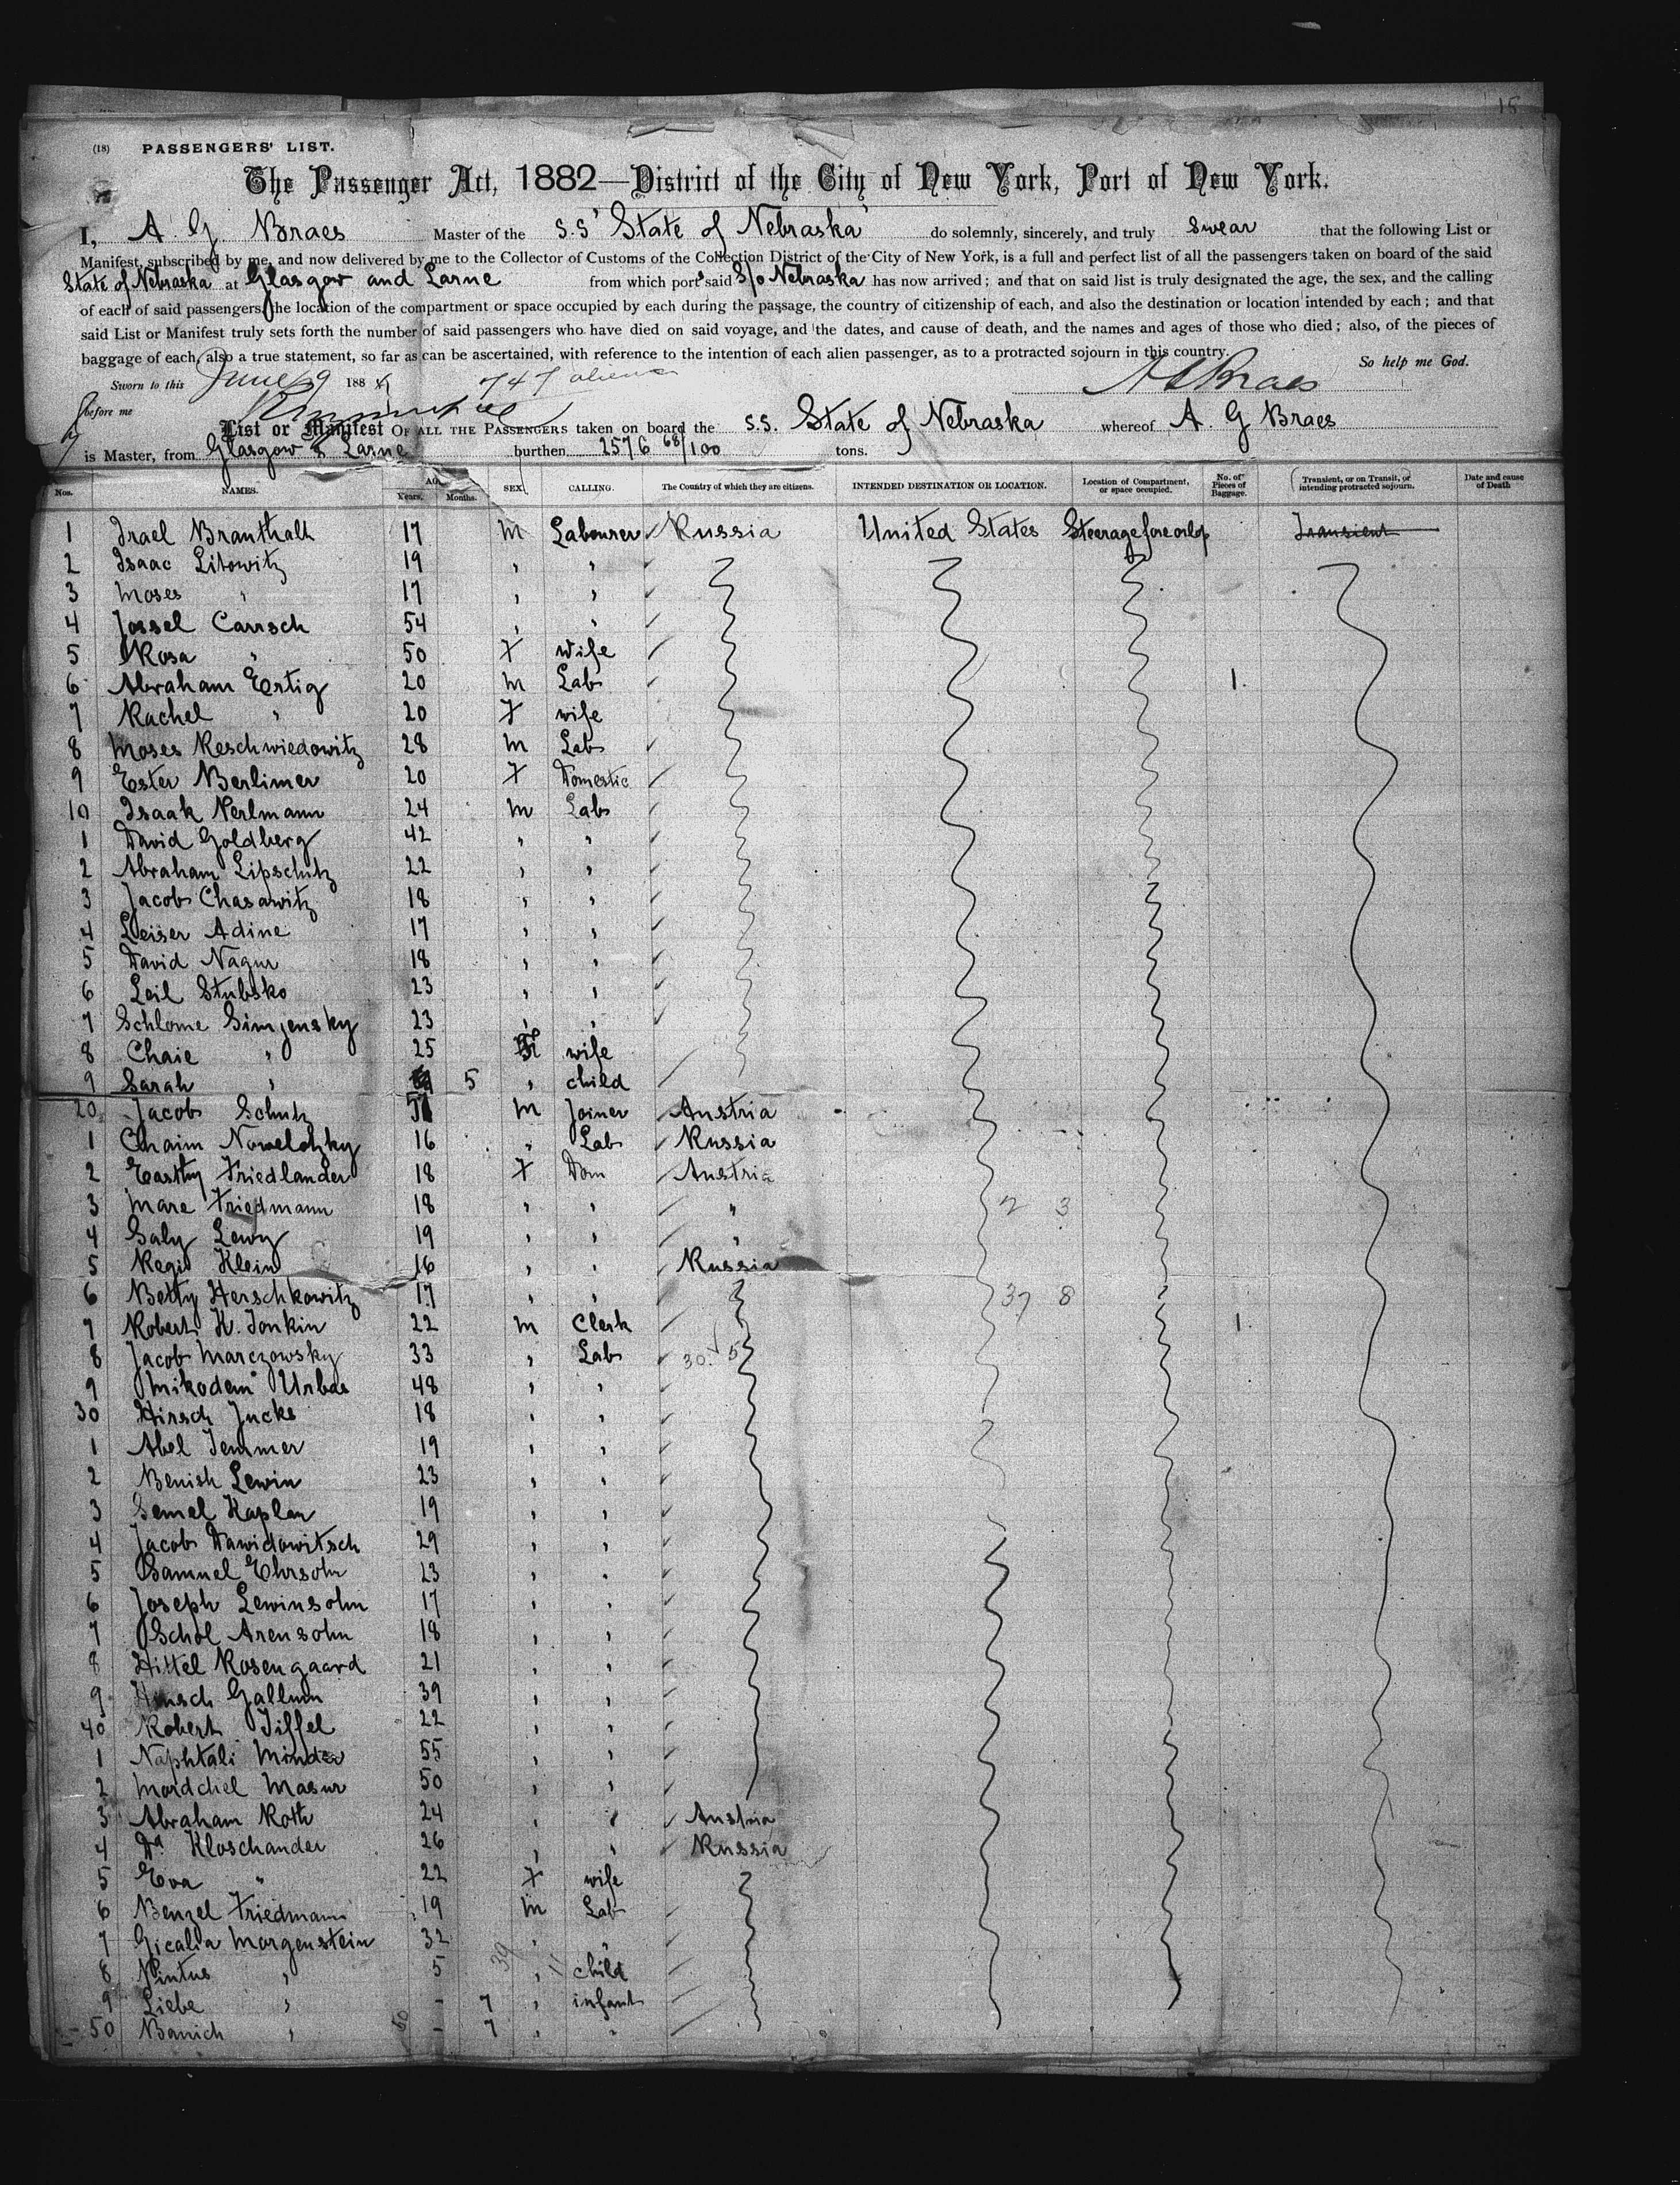 15
(18) PASSENGERS' LIST.
The Passenger Act, 1882—District of the City of New York, Port of New York.
I, A. G. Braes Master of the S.S 'State of Nebraska' do solemnly, sincerely, and truly Swear that the following List or
Manifest, subscribed by me, and now delivered by me to the Collector of Customs of the Collection District of the City of New York, is a full and perfect list of all the passengers taken on board of the said
State of Nebraska at Glasgow and Larne from which port said S/o Nebraska has now arrived; and that on said list is truly designated the age, the sex, and the calling
of each of said passengers, the location of the compartment or space occupied by each during the passage, the country of citizenship of each, and also the destination or location intended by each; and that
said List or Manifest truly sets forth the number of said passengers who have died on said voyage, and the dates, and cause of death, and the names and ages of those who died; also, of the pieces of
baggage of each, also a true statement, so far as can be ascertained, with reference to the intention of each alien passenger, as to a protracted sojourn in this country. So help me God.
Sworn to this June 9 188 747 aliens A G Braes
before me
List or Manifest OF ALL THE PASSENGERS taken on board the S.S. State of Nebraska whereof A. G Braes
is Master, from Glasgow & Larne burthen 2576 68/100 tons.
Nos. NAMES. AGE Years. Months. SEX. CALLING. The Country of which they are citizens. INTENDED DESTINATION OR LOCATION. Location of Compartment, or space occupied. No. of Pieces of Baggage. Transient, or on Transit, or intending protracted sojourn. Date and cause of Death
1 Israel Branthalt 17 m Labourer Russia United States Steerage fore orlop Transient
2 Isaac Litowitz 19 " "
3 Moses " 17 " "
4 Jossel Carrsch 54 " "
5 Rosa " 50 F wife
6 Abraham Ertig 20 m Lab 1
7 Rachel " 20 F wife
8 Moses Reschwiedowitz 28 m Lab
9 Ester Berlimer 20 F Domestic
10 Isaak Perlmann 24 m Lab
1 David Goldberg 42 " "
2 Abraham Lipschutz 22 " "
3 Jacob Chasawitz 18 " "
4 Leiser Adine 17 " "
5 David Nagur 18 " "
6 Leil Stubsko 23 " "
7 Schlome Simjensky 23 " "
8 Chaie " 25 F wife
9 Sarah " 5 " child
20 Jacob Schutz m Joiner Austria
1 Chaim Nowelotzky 16 " Lab Russia
2 Easthy Friedlander 18 F Dom Austria
3 Mare Friedmann 18 " " " 2 3
4 Saly Lewy 19 " " "
5 Regie Klein 16 " " Russia
6 Betty Herschkowitz 17 " " 37 8
7 Robert K. Jonkin 22 m Clerk 1
8 Jacob Marczowsky 33 " Lab 30. 5
9 Mikodem Urbas 48 " "
30 Hirsch Jucks 18 " "
1 Abel Temmer 19 " "
2 Benish Lewin 23 " "
3 Semel Kaplan 19 " "
4 Jacob Dawidowitsch 29 " "
5 Samuel Ehrsohn 23 " "
6 Joseph Lewinsohn 17 " "
7 Schol Arensohn 18 " "
8 Hittel Rosengaard 21 " "
9 Hirsch Gallum 39 " "
40 Robert Tiffel 22 " "
1 Naphtali Minder 55 " "
2 Mordchel Masur 50 " "
3 Abraham Roth 24 " " Austria
4 Dd Kloschander 26 " " Russia
5 Eva " 22 F wife
6 Benzel Friedmann 19 m Lab
7 Gicalia Morgenstein 32 " "
8 Pintus " 5 39 " 11 child
9 Liebe " - 7 " infant
50 Banich " 50 - 7 " "